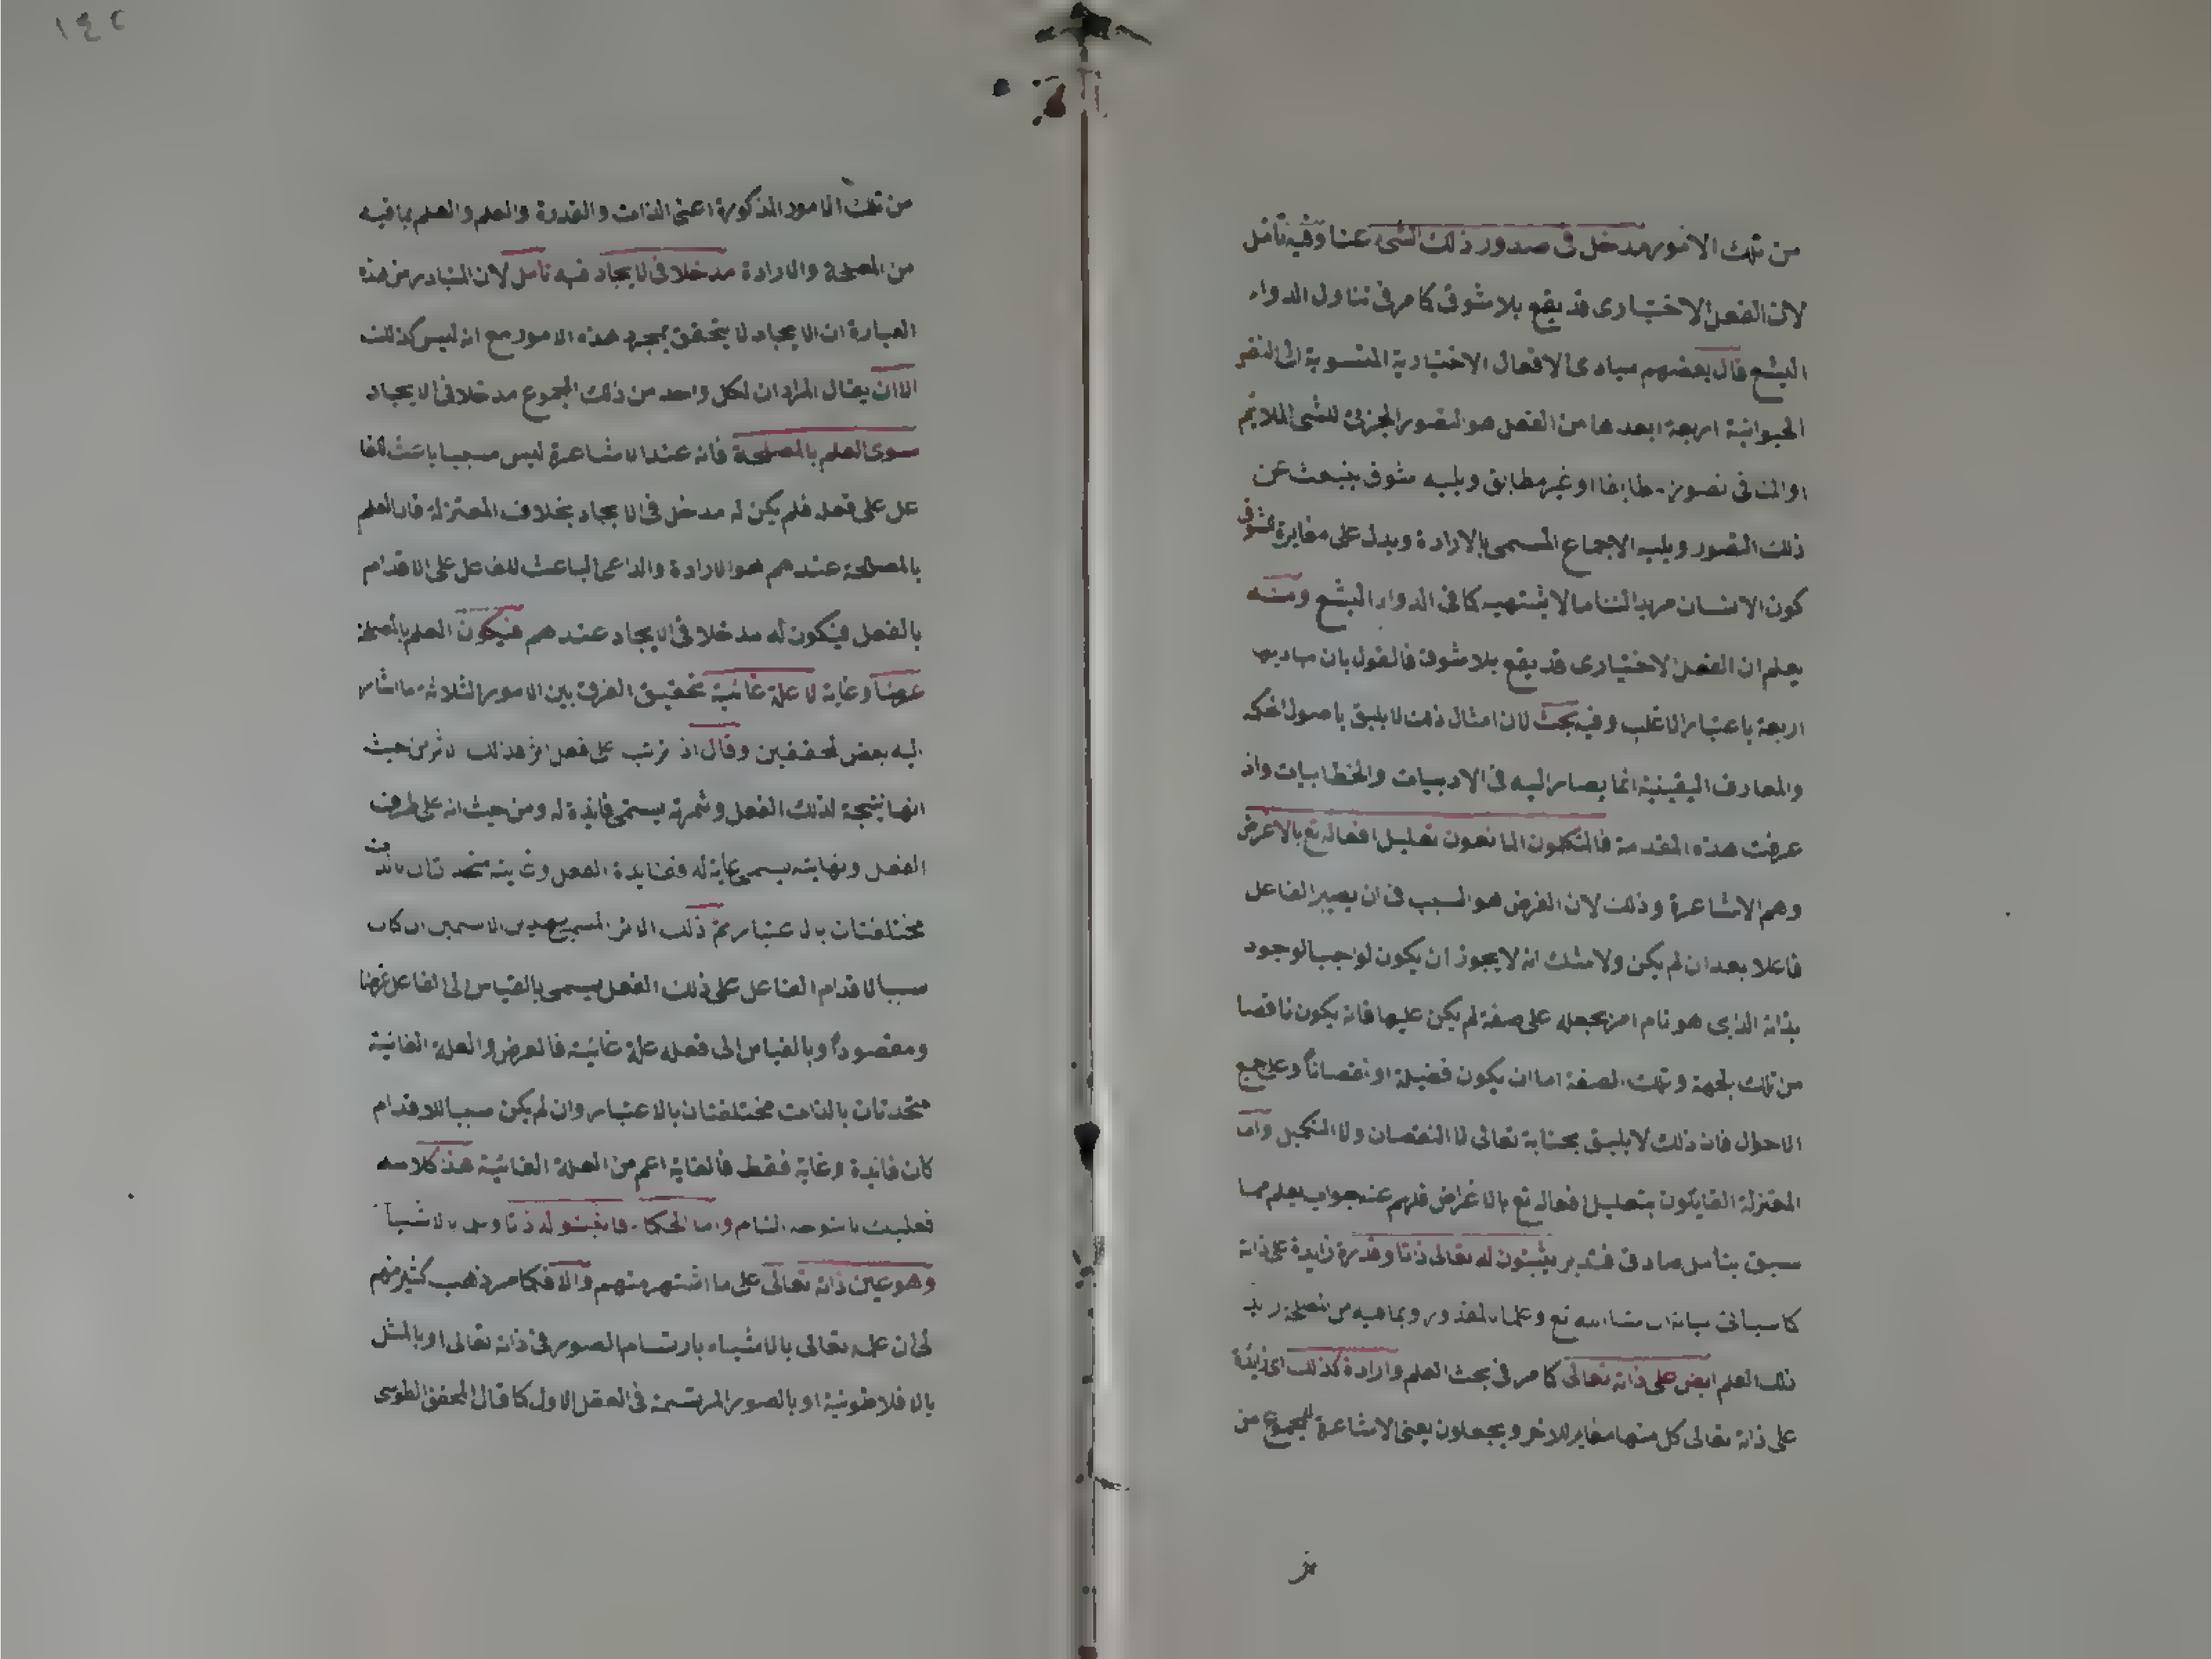 من تلك الامور مدخل فى صدور ذلك الشئ عنا وفيه تامل
لان الفعل الاختيارى قد يقع بلا شوق كما مر فى تناول الدواء
البشع قال بعضهم مبادى الافعال الاختيارية المنسوبة الى النفس
الحيوانية اربعة ابعدها من الفعل هو التصور الجزئ للشئ الملايم
او المنافى تصورا مطابقا او غير مطابق ويليه شوق ينبعث عن
ذلك التصور ويليه الاجماع المسمى بالارادة ويدل على مغايرة الشوق
كون الانسان مريدا لتناول ما لا يشتهيه كما فى الدواء البشع ومنه
يعلم ان الفعل الاختيارى قد يقع بلا شوق فالقول بان مباديه
اربعة باعتبار الاغلب وفيه بحث لان امثال ذلك لا يليق باصول الحكمة
والمعارف اليقينية انما يصار اليه فى الادبيات والخطابيات واذ
عرفت هذه المقدمة فالمتكلمون المانعون تعليل افعاله تع بالاغراض
وهم الاشاعرة وذلك لان الغرض هو السبب فى ان يصير الفاعل
فاعلا بعد ان لم يكن ولا شك انه لا يجوز ان يكون لواجب الوجود
بذاته الذى هو تام امر يجعله على صفة لم يكن عليها فانه يكون ناقصا
من تلك الجهة وتلك الصفة اما ان يكون فضيلة او نقصانا وعلى جميع
الاحوال فان ذلك لا يليق بجنابه تعالى لا النقصان ولا التكميل واما
المعتزلة القايلون بتعليل افعاله تع بالاغراض فلهم عنه جواب يعلم مما
سبق بتأمل صادق فتدبر يثبتون له تعالى ذاتا وقدرة زايدة على ذاته
كما سيأتى بيانه ان شاء الله تع وعلما بالمقدور وبما فيه من المصلحة
ذلك العلم ايض على ذاته تعالى كما مر فى بحث العلم وارادة كذلك اى زايدة
على ذاته تعالى كل منها مغاير للاخر ويجعلون يعنى الاشاعرة للمجموع من
من
١٤٢
من تلك الامور المذكورة اعنى الذات والقدرة والعلم والعلم بما فيه
من المصلحة والارادة مدخلا فى الايجاد فيه تامل لان المتبادر من هذه
العبارة ان الايجاد لا يتحقق بمجرد هذه الامور مع انه ليس كذلك
الا ان يقال المراد ان لكل واحد من ذلك المجموع مدخلا فى الايجاد
سوى العلم بالمصلحة فانه عند الاشاعرة ليس سببا باعثا للفا
عل على فعله فلم يكن له مدخل فى الايجاد بخلاف المعتزلة فان العلم
بالمصلحة عندهم هو الارادة والداعى الباعث للفاعل على الاقدام
بالفعل فيكون له مدخلا فى الايجاد عندهم فيكون العلم بالمصلحة
غرضا وغاية لا علة غائية تحقيق الفرق بين الامور الثلاثة ما اشار
اليه بعض المحققين وقال اذا ترتب على فعل اثر فذلك الاثر من حيث
انها نتيجة لذلك الفعل وثمرته يسمى فايدة له ومن حيث انه على طرف
الفعل ونهايته يسمى غاية له ففايدة الفعل وغايته متحدتان بالذات
مختلفتان بالاعتبار ثم ذلك الاثر المسمى بهذين الاسمين ان كان
سببا لاقدام الفاعل على ذلك الفعل يسمى بالقياس الى الفاعل غرضا
ومقصودا وبالقياس الى فعله علة غائية فالغرض والعلة الغائية
متحدتان بالذات مختلفتان بالاعتبار وان لم يكن سببا للاقدام
كان فايدة وغاية فقط فالغاية اعم من العلة الغائية هذا كلامه
فعليك بالتوجه التام واما الحكماء فاثبتوا له ذاتا وعلما بالاشياء
وهو عين ذاته تعالى على ما اشتهر منهم والا فكما مر ذهب كثير منهم
الى ان علمه تعالى بالاشياء بارتسام الصور فى ذاته تعالى او بالمثل
بالافلاطونية او بالصور المرتسمة فى العقل الاول كما قال المحقق الطوسى